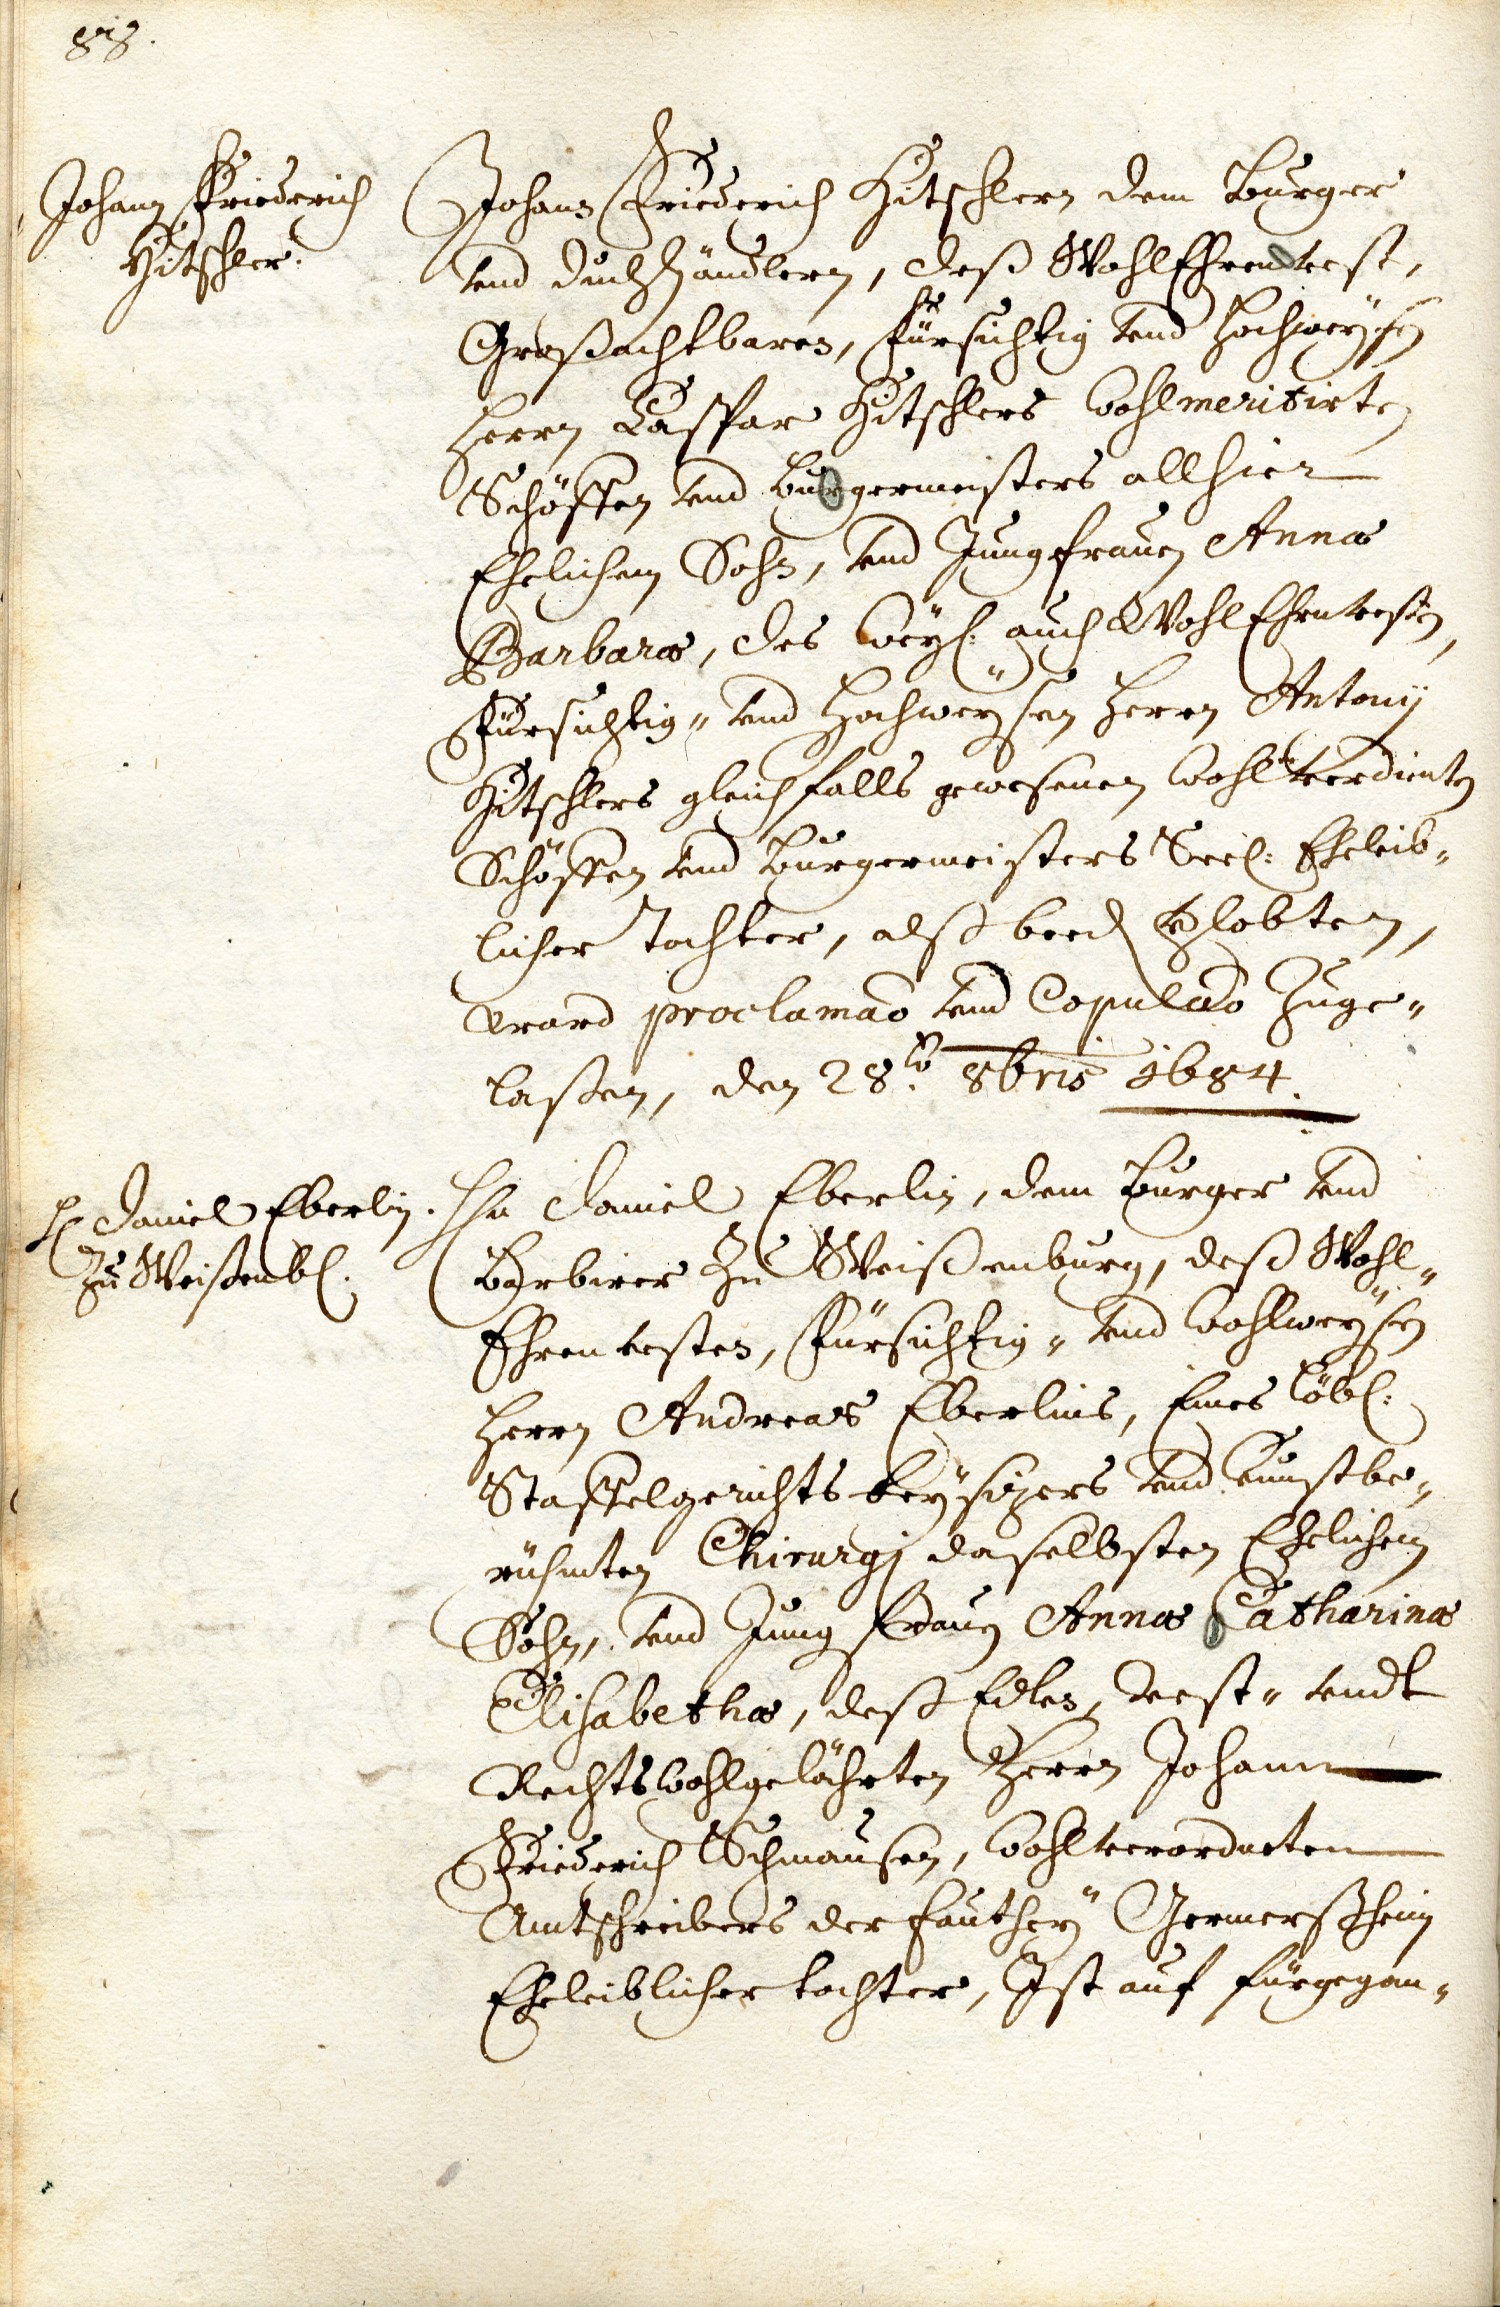 88.
Johann Friederich
Hitschler.
Johann Friederich Hitschlern dem Burger
vnd Duchhändlern, deß WohlEhrenvest,
Großachtbaren, Fürsichtig vnd Hochweysen
Herrn Caspar Hitschlers Wohlmeritirten
Schöffen vnd Burgermeisters allhier
Ehelichem Sohn, vnd Jungfrauen Annæ
Barbaræ, des Weyl: auch WohlEhrnvesten,
Fürsichtig- vnd Hochweysen Herrn Antonij
Hitschlers gleichfalls gewesenen Wohlverdienten
Schöffen vnd Burgermeisters Seel: Eheleib-
licher Tochter, alß beed Vlobten,
ward proclamaõ vnd Copulaõ Zuge-
laßen, den 28.to 8bris 1684.
H Daniel Eberlin.
Zu Weißenb.
Hn Daniel Eberlin, dem Burger vnd
Barbirer zu Weißenburg, deß Wohl-
Ehrenvesten, Fürsichtig- vnd Wohlweysen
Herrn Andreas Eberlins, Eines Löbl:
Staffelgerichts beysizers vnd kunstbe-
rühmten Chirurgj daselbsten Ehelichem
Sohn, vnd Jungfrauen Annæ Catharinæ
Elisabethæ, deß Edlen, Vest- vndt
Rechtswohlgelährten Herrn Johann
Friederich Schmausen, Wohlverordneten
Amtschreibers der Fauthey Germerßheim
Eheleiblicher tochter, Ist auf fürgegan-